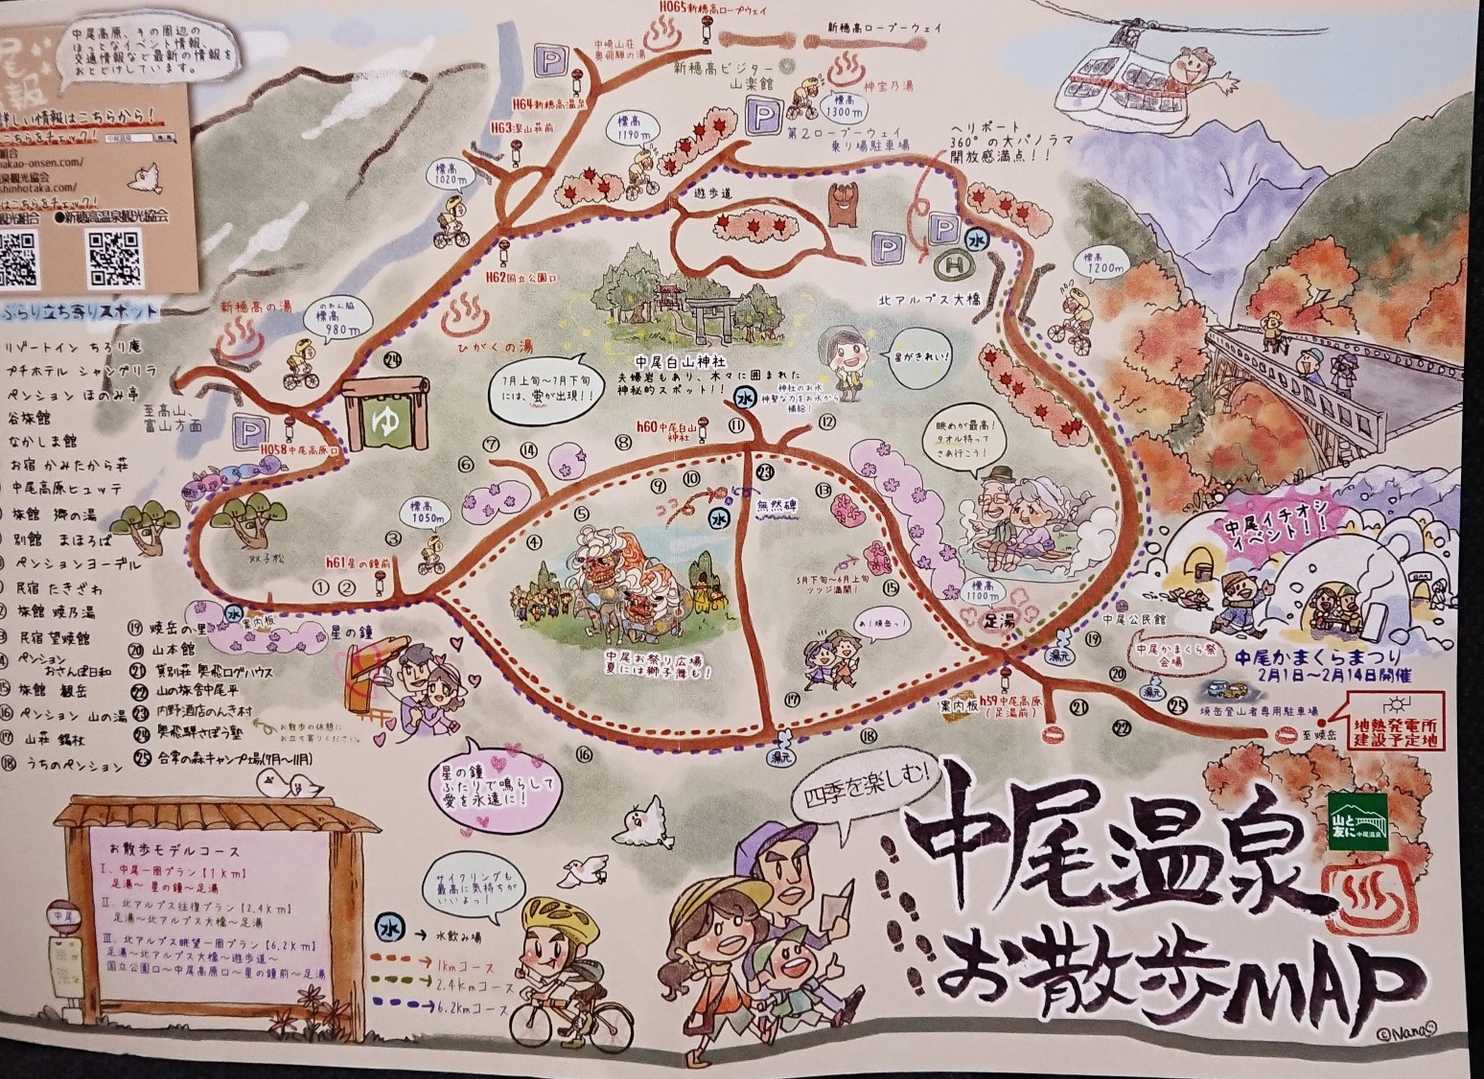 中尾高原、その周辺の
ほっとなイベント情報、
交通情報など最新の情報を
おとどけしています。
詳しい情報はこちらから！
こちらをチェック！
akao-onsen.com/
泉観光協会
shinhotaka.com/
はこちらをチェック！
観光組合 ●新穂高温泉観光協会
ぶらり立ち寄りスポット
リゾートイン ちろり庵
プチホテル シャングリラ
ペンション ほのみ亭
谷旅館
なかしま館
お宿 かみたから荘
中尾高原ヒュッテ
旅館 満の湯
別館 まほろば
ペンションヨーデル
民宿 たきざわ
旅館 焼乃湯
民宿 望焼館
ペンション
おさんぽ日和
⑮ 旅館 観岳
⑯ ペンション 山の湯
⑰ 山荘 錫杖
⑱ うちのペンション
⑲ 焼岳の里
⑳ 山本館
㉑ 貸別荘 奥飛ログハウス
㉒ 山の旅舎中尾平
㉓ 内野酒店のんき村
お散歩の休憩に
お立ち寄りください。
㉔ 奥飛騨さぼう塾
㉕ 合掌の森キャンプ場(7月〜11月)
H065新穂高ロープウェイ
新穂高ロープーウェイ
中崎山荘
奥飛騨の湯
新穂高ビジター
山楽館
神宝乃湯
P
H64新穂高温泉
H63深山荘前
標高
1300m
標高
1190m
P
第2ロープーウェイ
乗り場駐車場
ヘリポート
360°の大パノラマ
開放感満点！！
標高
1020m
遊歩道
P
P
水
H
H62国立公園口
標高
1200m
北アルプス大橋
新穂高の湯
標高
980m
ひがくの湯
㉔
ゆ
至高山、
富山方面
P
H058中尾高原口
中尾白山神社
夫婦岩もあり、木々に囲まれた
神秘的スポット！！
星がきれい！
7月上旬〜7月下旬
には、蛍が出現！！
水
神社のお水
神聖な力をお水から
補給！
h60中尾白山
神社
⑪
⑫
⑥
⑦
⑭
⑧
眺めが最高！
タオル持って
さあ行こう！
⑨
⑩
㉓
⑬
水
無然碑
標高
1050m
双子松
③
⑤
④
h61星の鐘前
①
②
5月下旬〜6月上旬
ツツジ満開！
⑮
標高
1100m
足湯
水
案内板
星の鐘
あ！焼岳っ！
中尾お祭り広場
夏には獅子舞も！
湯元
中尾公民館
⑲
中尾イチオシ
イベント！！
中尾かまくら祭
会場
中尾かまくらまつり
2月1日〜2月14日開催
⑳
湯元
㉕
焼岳登山者専用駐車場
地熱発電所
建設予定地
至焼岳
案内板
h59中尾高原
(足湯前)
㉑
㉒
⑰
⑯
湯元
⑱
星の鐘
ふたりで鳴らして
愛を永遠に！
四季を楽しむ！
お散歩モデルコース
Ⅰ. 中尾一周プラン【1km】
足湯〜星の鐘〜足湯
Ⅱ. 北アルプス往復プラン【2.4km】
足湯〜北アルプス大橋〜足湯
Ⅲ. 北アルプス眺望一周プラン【6.2km】
足湯〜北アルプス大橋〜遊歩道〜
国立公園口〜中尾高原口〜星の鐘前〜足湯
中尾
サイクリングも
最高に気持ちが
いいよっ！
水→水飲み場
1kmコース
2.4kmコース
6.2kmコース
中尾温泉
お散歩MAP
山と
友に
中尾温泉
©Nana